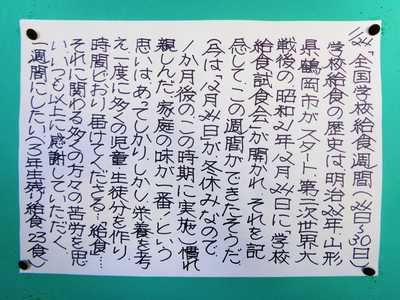 1/24「全国学校給食週間」24日〜30日
学校給食の歴史は明治22年、山形
県鶴岡市がスタート。第二次世界大
戦後の昭和21年12月24日に「学校
給食試食会」が開かれ、それを記
念して、この週間ができたそうだ。
(今は、12月24日が冬休みなので、
1か月後のこの時期に実施)慣れ
親しんだ、家庭の味が一番!という
思いはあってしかり。しかし、栄養を考
え、一度に多くの児童・生徒分を作り、
時間どおり届けてくださる…給食…。
それに関わる多くの方々の苦労を思
い、いつも以上に感謝していただく、
一週間にしたい。(3年生残り給食23食)